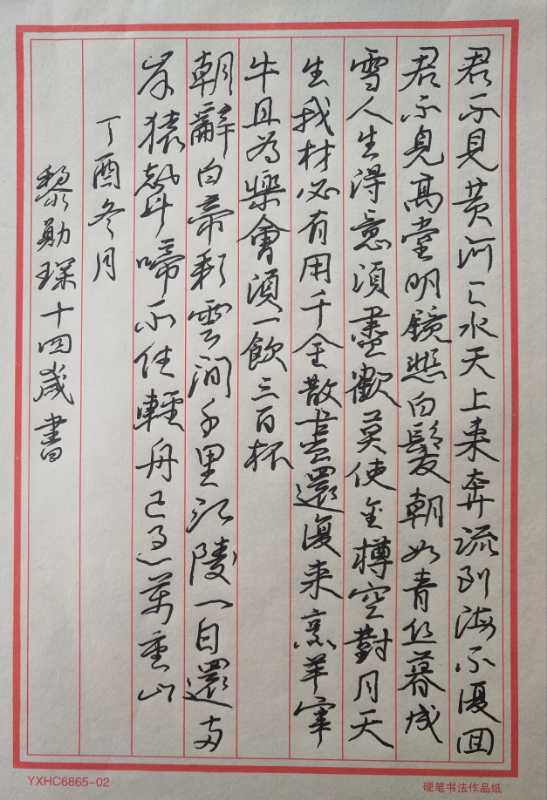 君不見黄河之水天上来奔流到海不復回
君不見高堂明鏡悲白髮朝如青丝暮成
雪人生得意須盡歡莫使金樽空對月天
生我材必有用千金散盡還復来烹羊宰
牛且為樂會須一飲三百杯
朝辭白帝彩雲間千里江陵一日還两
岸猿聲啼不住輕舟已过萬重山
丁酉冬月
黎勛琛十四歲書
YXHC6865-02
硬笔书法作品纸